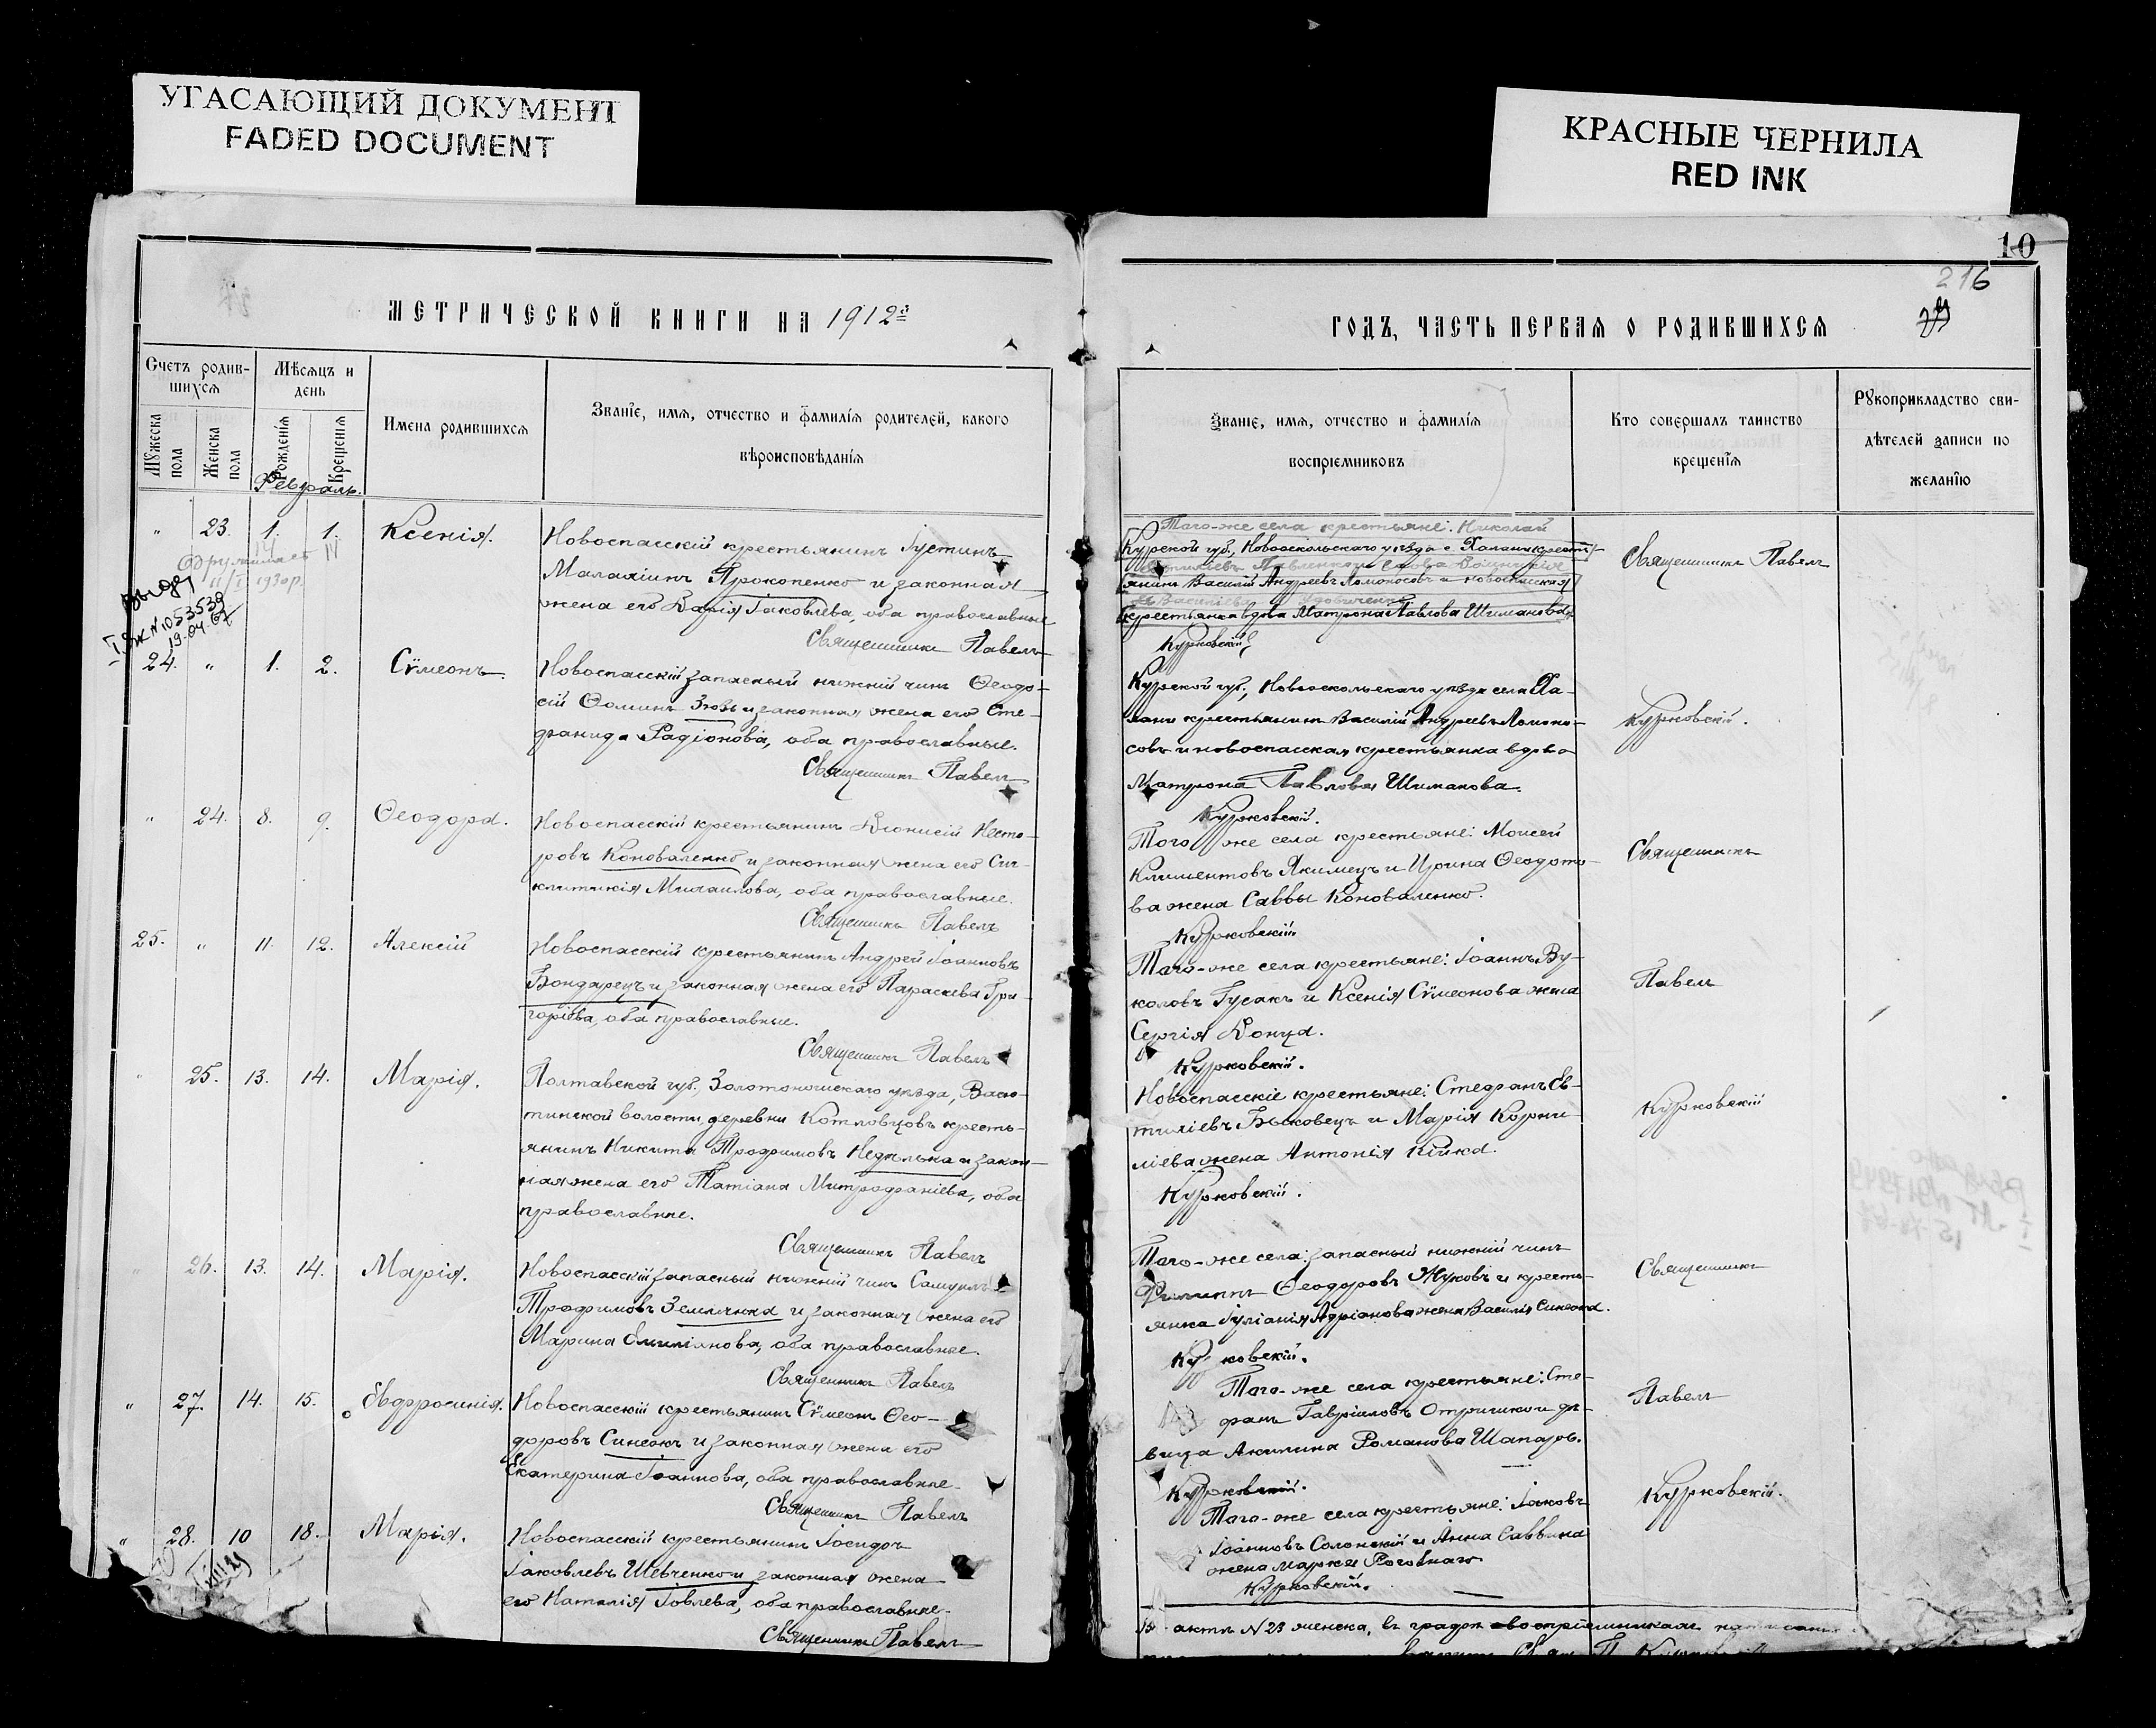 УГАСАЮЩИЙ ДОКУМЕНТ
FADED DOCUMENT
КРАСНЫЕ ЧЕРНИЛА
RED INK
МЕТРИЧЕСКОЙ КНИГИ НА 1912й
Счетъ родив-
шихся
Мѣсяцъ и
день
Мужеска
пола
Женска
пола
Рожденія
Крещенія
Имена родившихся
Званіе, имя, отчество и фамилія родителей, какого
вѣроисповѣданія
Февраль.
" 23. 1. 1. Ксенія.
Новоспасскій крестьянинъ Іустинъ
Малахіинъ Прокопенко и законная
жена его Дарія Іаковлева, оба православные
Священникъ Павелъ
1930 р.
19.04.67
24. " 1. 2. Сѵмеонъ.
Новоспасскій запасный нижній чинъ Ѳеодо-
сій Ѳоминъ Зюзь и законная жена его Сте-
фанида Радіонова, оба православные.
Священникъ Павелъ
" 24. 8. 9. Ѳеодора.
Новоспасскій крестьянинъ Діонисій Несто-
ровъ Коноваленко и законная жена его Син-
клитикія Михаилова, оба православные.
Священникъ Павелъ
25. " 11. 12. Алексій
Новоспасскій крестьянинъ Андрей Іоанновъ
Бондарецъ и законная жена его Параскева Гри-
горіева, оба православные.
Священникъ Павелъ
" 25. 13. 14. Марія.
Полтавской губ., Золотоношскаго уѣзда,
волости, деревни крестъ-
янинъ Никита Трофимовъ Недѣлька и закон-
ная жена его Татіана Митрофаніева, оба
православные.
Священникъ Павелъ
" 26. 13. 14. Марія.
Новоспасскій запасный нижній чинъ Самуилъ
Трофимовъ Землянка и законная жена его
Марина Емиліанова, оба православные.
Священникъ Павелъ
" 27. 14. 15. Евфросинія.
Новоспасскій крестьянинъ Сѵмеонъ Ѳео-
доровъ Синеокъ и законная жена его
Екатерина Іоаннова, оба православные.
Священникъ Павелъ
" 28. 10 18. Марія.
Новоспасскій крестьянинъ Ісидоръ
Іаковлевъ Шевченко и законная жена
его Наталія Іовлева, оба православные.
Священникъ Павелъ
10
216
ГОДЪ, ЧАСТЬ ПЕРВАЯ О РОДИВШИХСЯ
Званіе, имя, отчество и фамилія
воспріемниковъ
Кто совершалъ таинство
крещенія
Рукоприкладство сви-
дѣтелей записи по
желанію
Того-же села крестьяне: Николай
Курской губ., Новооскольскаго уѣзда с. Халани крестъ-
янинъ Василій Андреевъ Ломоносовъ и новоспасская
крестьянка вдова Матрона Павлова Шиманова
Курковскій
Священникъ Павелъ
Курской губ., Новооскольскаго уѣзда села Ха-
лани крестьянинъ Василій Андреевъ Ломоно-
совъ и новоспасская крестьянка вдова
Матрона Павлова Шиманова.
Курковскій.
Курковскій.
Того же села крестьяне: Моисей
Климентовъ Якимецъ и Ирина Ѳеодото-
ва жена Саввы Коноваленко.
Курковскій.
Священникъ
Того-же села крестьяне: Іоаннъ Ву-
коловъ Гусакъ и Ксенія Сѵмеонова жена
Сергія Донца.
Курковскій.
Павелъ
Новоспасскіе крестьяне: Стефанъ Ев-
тихіевъ Быковецъ и Марія Корни-
ліева жена Антонія Кійка.
Курковскій.
Курковскій
Того-же села: запасный нижній чинъ
Филиппъ Ѳеодоровъ Жуковъ и кресть-
янка Іуліанія Адріанова жена Василія Синеока.
Курковскій.
Священникъ
Того-же села крестьяне: Сте-
фанъ Гавріиловъ Отришко и дѣ-
вица Акилина Романова Шапаръ.
Курковскій.
Павелъ
Того-же села крестьяне: Іаковъ
Іоанновъ Солонскій и Анна Саввина
жена Марка Роговнаго
Курковскій.
Курковскій.
Въ актѣ N 23 женска, въ графѣ о воспріемникахъ написано